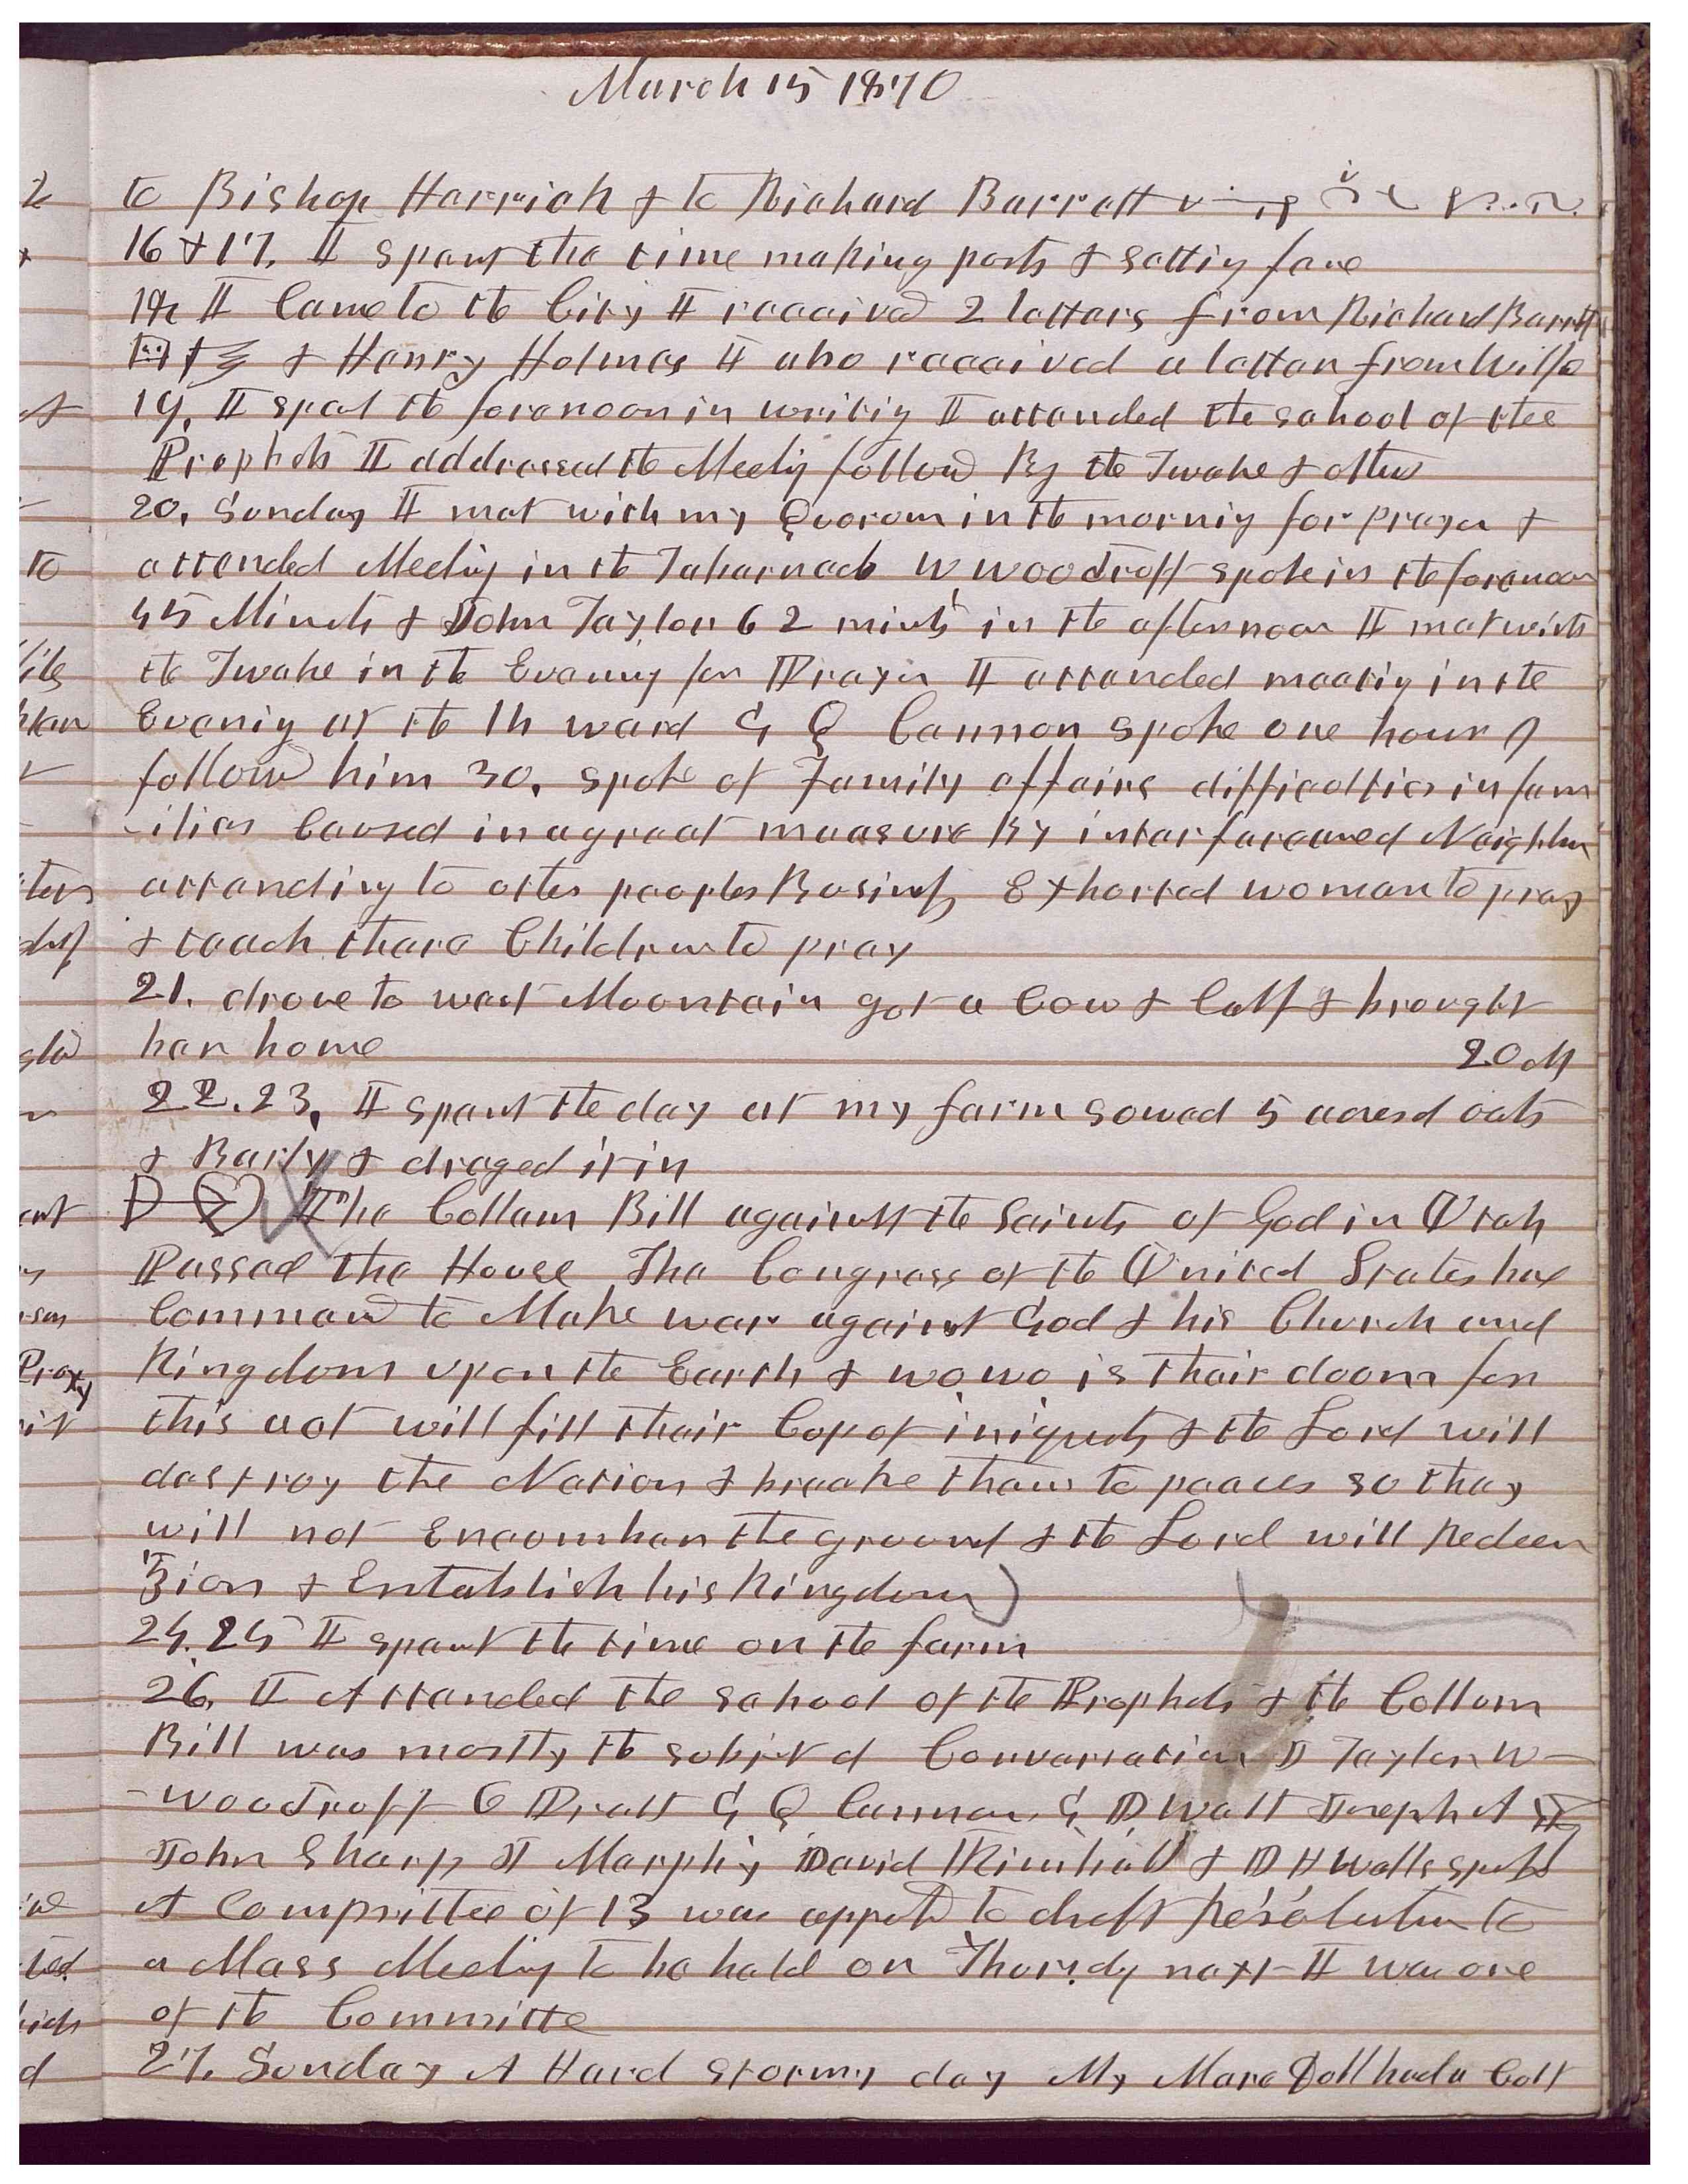 March 15 1870
to Bishop Herrick & to Richard Barrett
16 & 17. I spent the time making posts & setting fence
18 I Came to the City I received 2 letters from Richard Barrett
& Henry Holmes I also received a letter from Wilford
19. I spent the forenoon in writing I attended the school of the
Prophets I adddressed the Meeting followed By the Twelve & others
20. Sunday I met with my Quorum in the morning for prayer &
attended Meeting in the Tabernacle W Woodruff spoke in the forenoon
45 Minuts & John Taylor 62 minuts in the afternoon I met with
the Twelve in the Evening for Prayer I attended meeting in the
Evening at the 14 ward G Q Cannon spoke one hour I
followed him 30. spoke of Family affairs difficulties in fam
-ilies Caused in a great measure By interfereance of Neighbors
attending to other peoples Business Exhorted women to pray
& teach there Children to pray
21. drove to west Mountain got a Cow & Calf & brought
her home 20 M
22. 23. I spent the day at my farm sowed 5 acres of oats
& Barly & draged it in
The Collam Bill against the Saints of God in Utah
Passed the House The Congress of the United States has
Commenced to Make war against God & his Church and
Kingdom upon the Earth & wo wo is their doom for
this act will fill their Cup of iniquity & the Lord will
destroy the Nation & breake them to peaces so they
will not Encomber the ground & the Lord will Redeem
Zion & Entablish his Kingdom)
24. 25 I spent the time on the farm
26. I Attended the school of the Prophets & the Collum
Bill was mostly the subject of Convarsation J Taylor W-
-Woodruff O Pratt G Q Cannon G D Watt Joseph A Y
John Sharp J Marphy David Kimball & D H Wells spoke
A Committee of 13 was appointed to draft Resolution to
a Mass Meeting to be held on Thursdy next I was one
of the Committe
27. Sunday A Hard stormy day My Mare Doll had a Colt